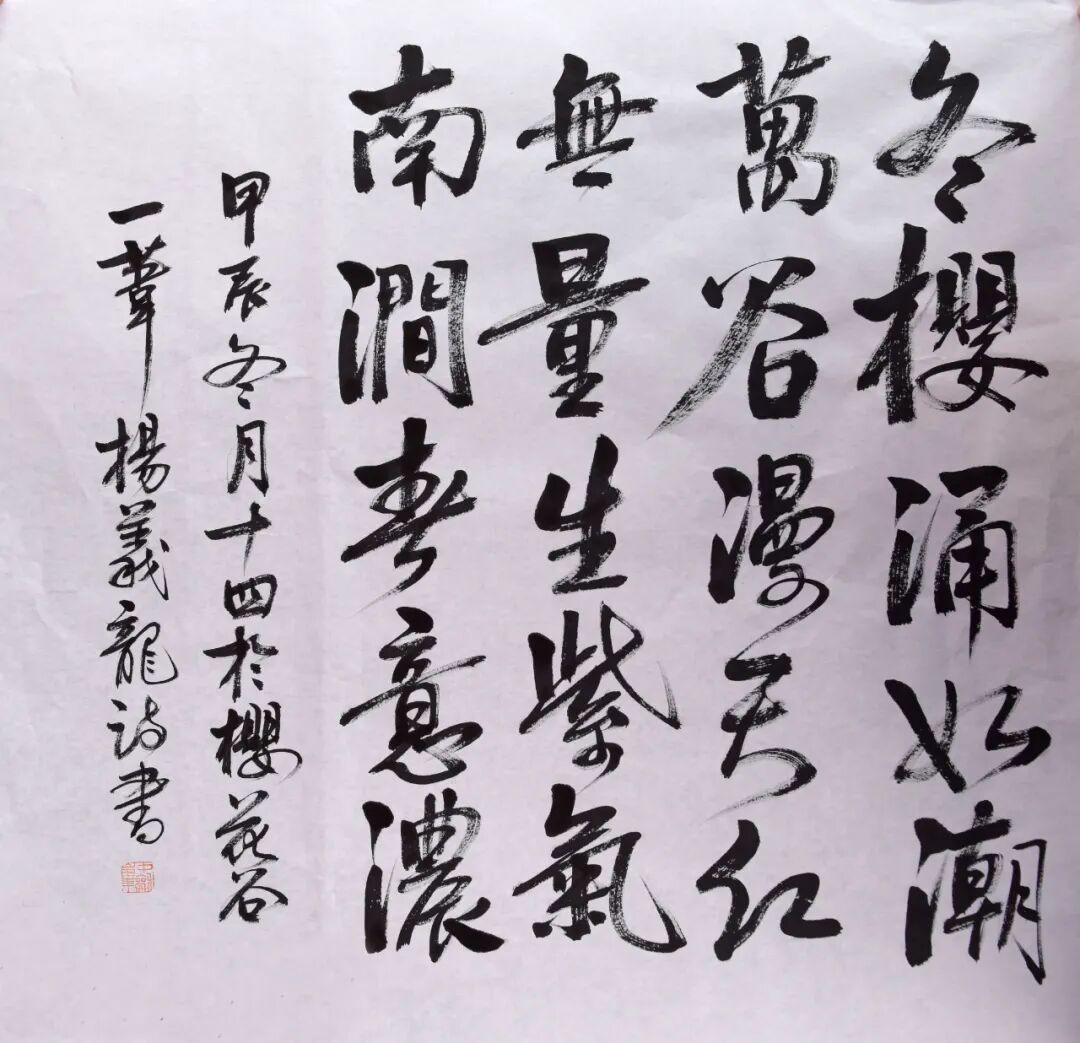 冬櫻涌如潮
萬谷漫天紅
無量生紫氣
南澗春意濃
甲辰冬月十四於櫻花谷
一葦楊義龍詩書